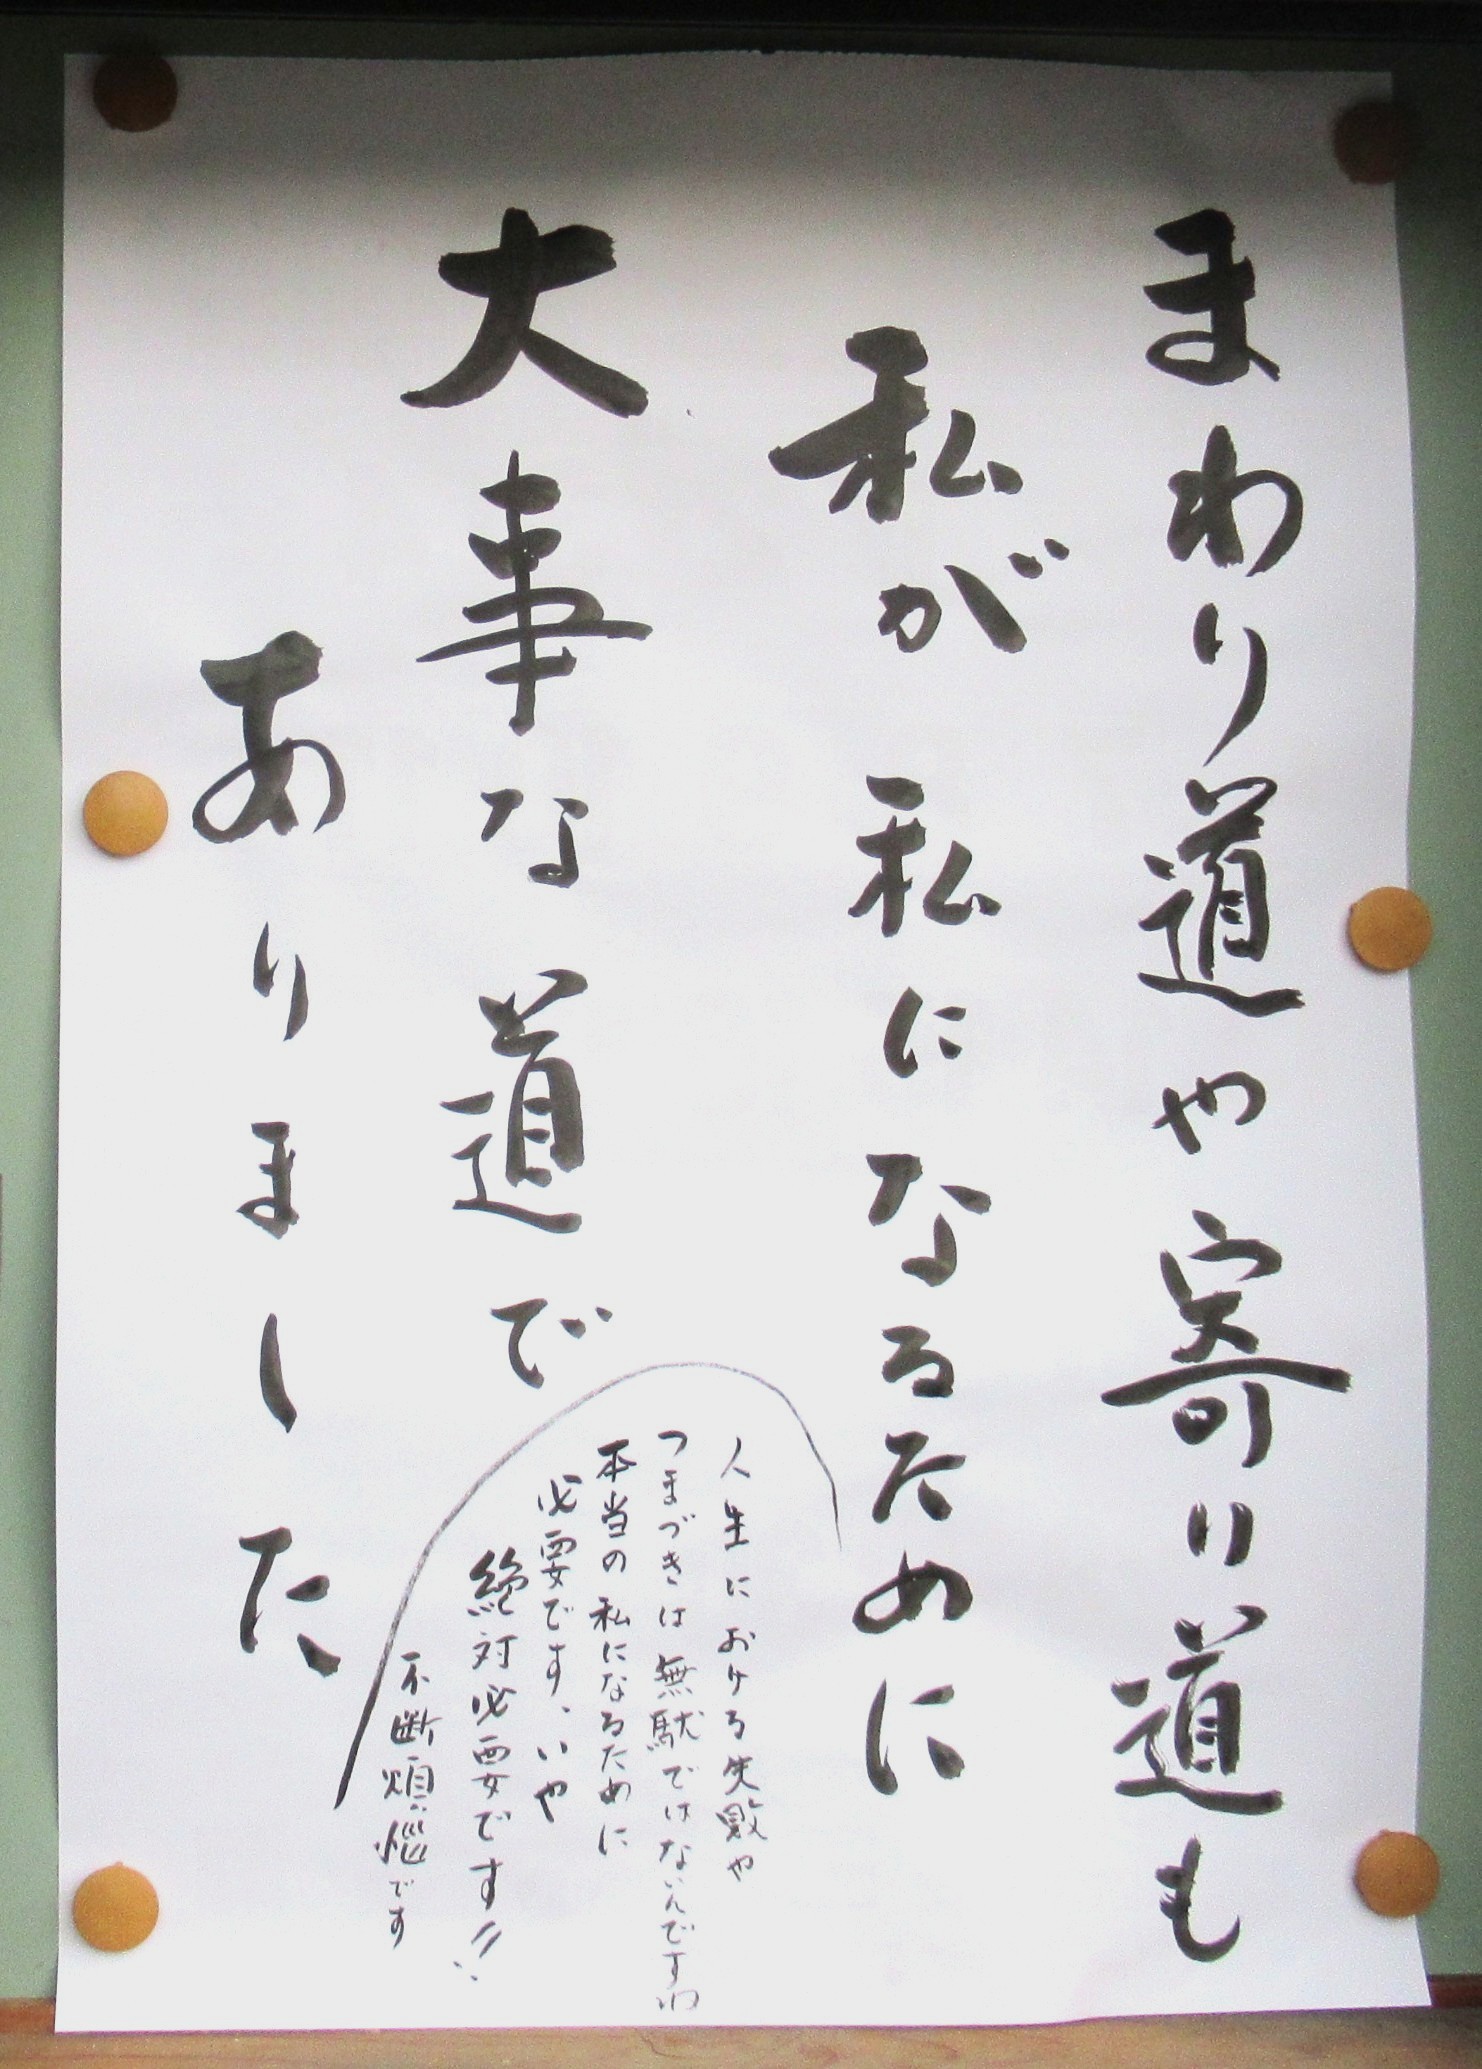 まわり道や寄り道も
私が私になるために
大事な道で
ありました
人生における失敗や
つまづきは無駄ではないんですね
本当の私になるために
必要です、いや
絶対必要です!!
不断煩悩です